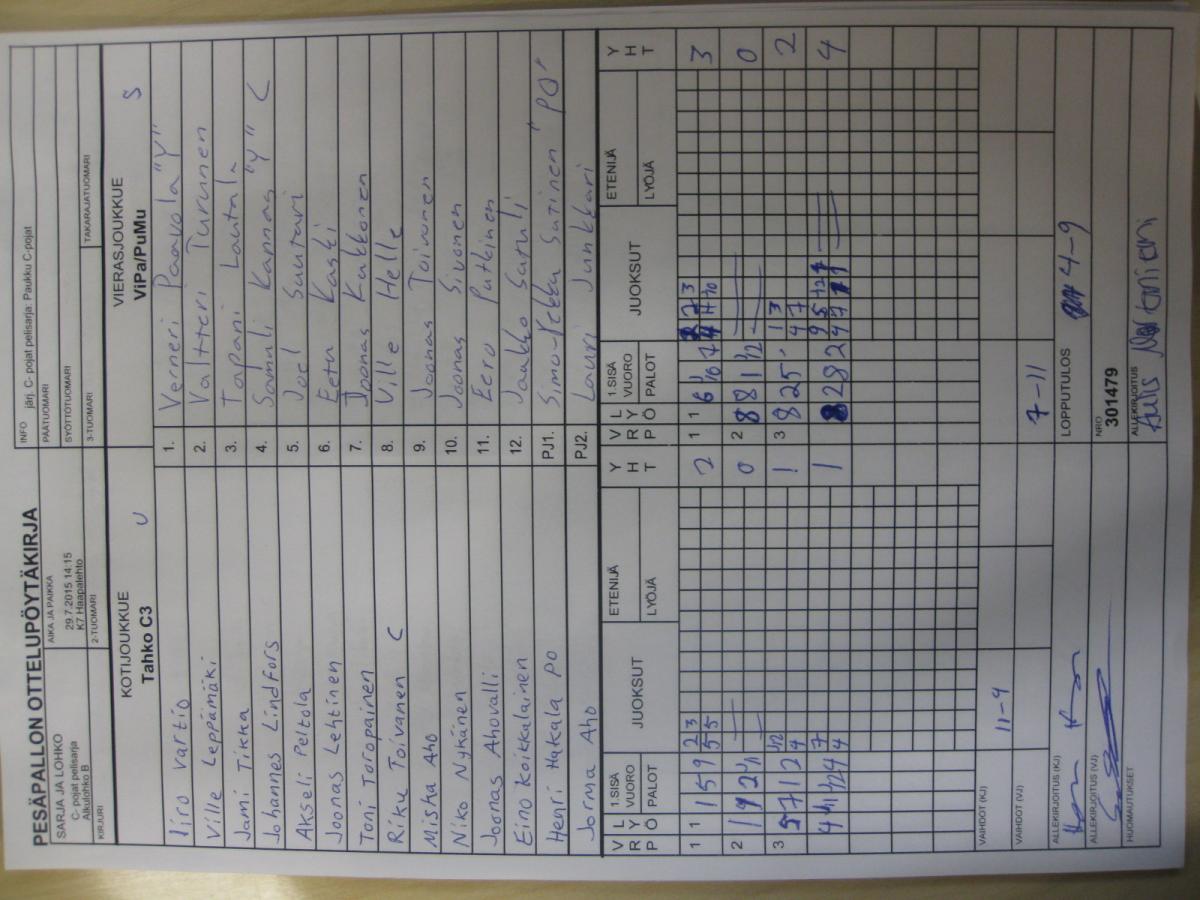 PESÄPALLON OTTELUPÖYTÄKIRJA
SARJA JA LOHKO
C- pojat pelisarja
Alkulohko B
AIKA JA PAIKKA
29.7.2015 14:15
K7 Haapalehto
INFO järj. C- pojat pelisarja: Paukku C-pojat
PÄÄTUOMARI
SYÖTTÖTUOMARI
KIRJURI
2-TUOMARI
3-TUOMARI
TAKARAJATUOMARI
KOTIJOUKKUE U
Tahko C3
VIERASJOUKKUE S
ViPa/PuMu
Iiro Vartio 1. Verneri Paavola "Y"
Ville Leppämäki 2. Valtteri Turunen
Jami Tikka 3. Tapani Lautala
Johannes Lindfors 4. Samuli Kannas "Y" C
Akseli Peltola 5. Joel Suuturi
Joonas Lehtinen 6. Eetu Kaski
Toni Toropainen 7. Joonas Kukkonen
Riku Toivanen C 8. Ville Helle
Misha Aho 9. Joonas Toivonen
Niko Nykänen 10. Joonas Sivonen
Joonas Ahovalli 11. Eero Putkinen
Eino Koikkalainen 12. Jaakko Satuli
Henri Hakala PO PJ1. Simo-Pekka Sutinen "PO"
Jorma Aho PJ2. Lauri Junkkari
V R P L Y Ö 1.SISÄ VUORO PALOT JUOKSUT ETENIJÄ LYÖJÄ Y H T V R P L Y Ö 1.SISÄ VUORO PALOT JUOKSUT ETENIJÄ LYÖJÄ Y H T
1 1 1 5 9 2 3 5 5 2 1 1 6 3
2 1 9 2 0 2 8 8 1 12 0
3 1 2 1 3 8 2 5 2
4 7 4 1 8 2 8 2 4
VAIHDOT (KJ) 11-9
VAIHDOT (VJ) 7-11
ALLEKIRJOITUS (KJ)
LOPPUTULOS 4-9
ALLEKIRJOITUS (VJ)
NRO
301479
HUOMAUTUKSET
ALLEKIRJOITUS